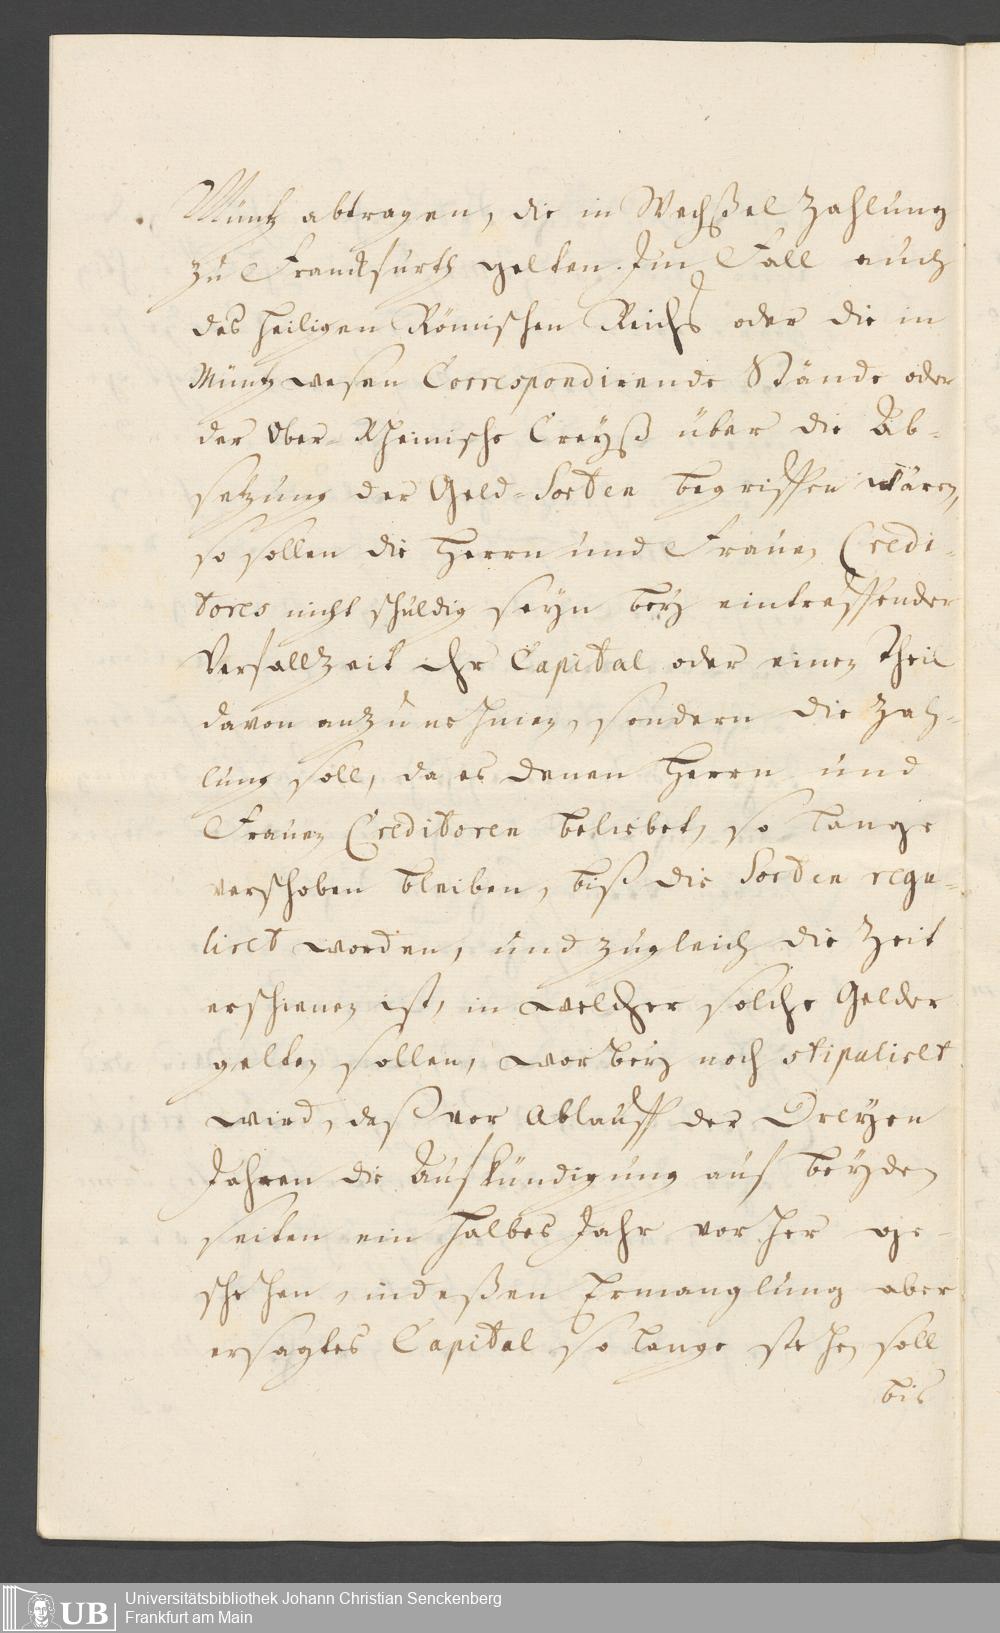 Müntz abtragen, die in Wechßel Zahlung
zu Franckfurth gelten. Im Fall auch
das heiligen Römischen Reichs oder die in
Müntzwesen Correspondirende Stände oder
der Ober-Rheinische Creyß über die Ab-
setzung der Geld-Sorten begriffen wären,
so sollen die Herrn und Frauen Credi-
tores nicht schuldig seyn bey eintreffender
Verfallzeit ihr Capital oder einen Theil
davon anzunehmen, sondern die Zah-
lung soll, da es denen Herrn und
Frauen Creditoren beliebet, so lange
verschoben bleiben, biß die Sorten regu-
liret worden, und zugleich die Zeit
erschienen ist, in welcher solche Gelder
gelten sollen, worbey noch stipuliret
wird, daß vor Ablauff der Dreyen
Jahren die Aufkündigung auf beyden
seiten ein halbes Jahr vorher ge-
schehen, in deßen Ermanglung aber
ersagtes Capital so lange stehen soll
bis
UB
Universitätsbibliothek Johann Christian Senckenberg
Frankfurt am Main